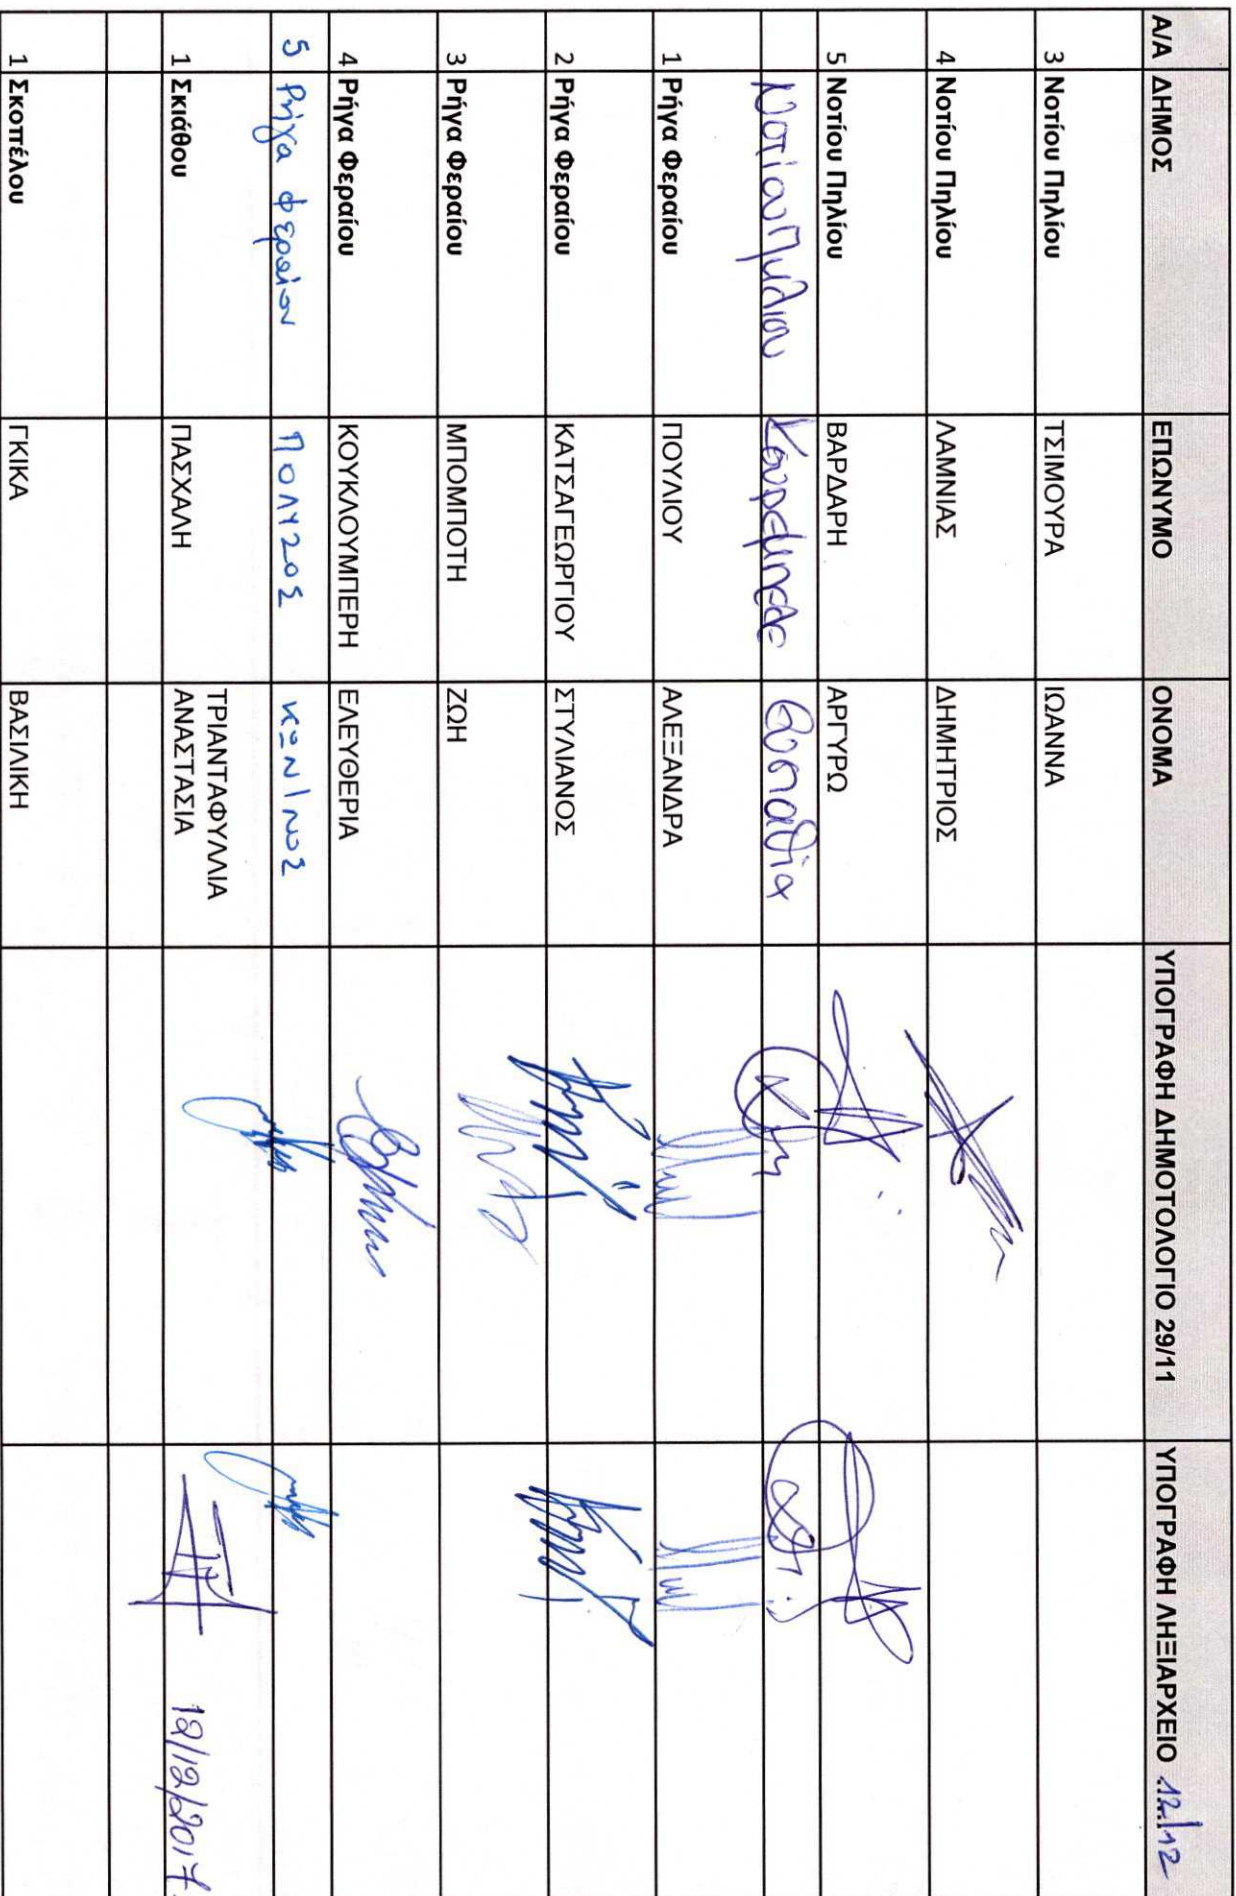 Α/Α ΔΗΜΟΣ ΕΠΩΝΥΜΟ ΟΝΟΜΑ ΥΠΟΓΡΑΦΗ ΔΗΜΟΤΟΛΟΓΙΟ 29/11 ΥΠΟΓΡΑΦΗ ΛΗΞΙΑΡΧΕΙΟ 12/12
3 Νοτίου Πηλίου ΤΣΙΜΟΥΡΑ ΙΩΑΝΝΑ
4 Νοτίου Πηλίου ΛΑΜΝΙΑΣ ΔΗΜΗΤΡΙΟΣ
5 Νοτίου Πηλίου ΒΑΡΔΑΡΗ ΑΡΓΥΡΩ
Νοτίου Πηλίου Ευσταθία
1 Ρήγα Φεραίου ΠΟΥΛΙΟΥ ΑΛΕΞΑΝΔΡΑ
2 Ρήγα Φεραίου ΚΑΤΣΑΓΕΩΡΓΙΟΥ ΣΤΥΛΙΑΝΟΣ
3 Ρήγα Φεραίου ΜΠΟΜΠΟΤΗ ΖΩΗ
4 Ρήγα Φεραίου ΚΟΥΚΛΟΥΜΠΕΡΗ ΕΛΕΥΘΕΡΙΑ
5 Ρήγα Φεραίου ΠΟΛΥΖΟΣ ΚΩΝ/ΝΟΣ
1 Σκιάθου ΠΑΣΧΑΛΗ ΤΡΙΑΝΤΑΦΥΛΛΙΑ
ΑΝΑΣΤΑΣΙΑ 12/12/2017
1 Σκοπέλου ΓΚΙΚΑ ΒΑΣΙΛΙΚΗ